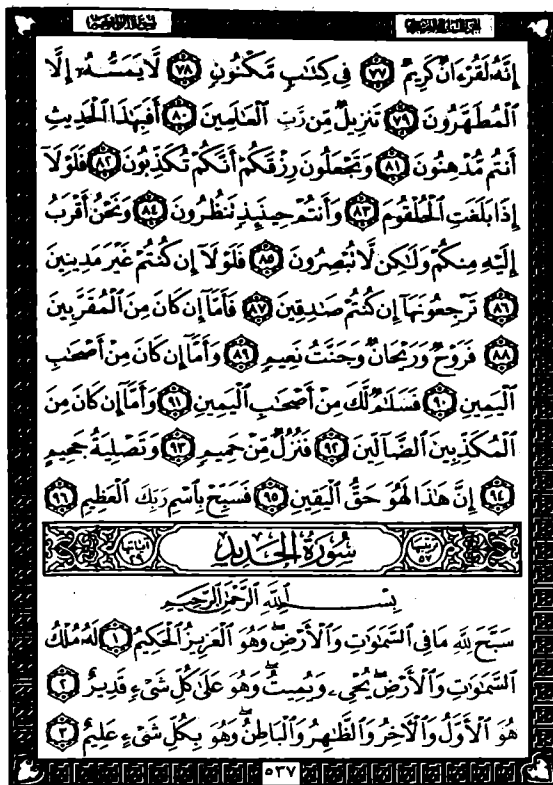 إِنَّهُۥ لَقُرْءَانٌ كَرِيمٌ ﴿٧٧﴾ فِى كِتَٰبٍ مَّكْنُونٍ ﴿٧٨﴾ لَّا يَمَسُّهُۥٓ إِلَّا
الْمُطَهَّرُونَ ﴿٧٩﴾ تَنزِيلٌ مِّن رَّبِّ الْعَٰلَمِينَ ﴿٨٠﴾ أَفَبِهَٰذَا الْحَدِيثِ
أَنتُم مُّدْهِنُونَ ﴿٨١﴾ وَتَجْعَلُونَ رِزْقَكُمْ أَنَّكُمْ تُكَذِّبُونَ ﴿٨٢﴾ فَلَوْلَآ
إِذَا بَلَغَتِ الْحُلْقُومَ ﴿٨٣﴾ وَأَنتُمْ حِينَئِذٍ تَنظُرُونَ ﴿٨٤﴾ وَنَحْنُ أَقْرَبُ
إِلَيْهِ مِنكُمْ وَلَٰكِن لَّا تُبْصِرُونَ ﴿٨٥﴾ فَلَوْلَآ إِن كُنتُمْ غَيْرَ مَدِينِينَ
﴿٨٦﴾ تَرْجِعُونَهَآ إِن كُنتُمْ صَٰدِقِينَ ﴿٨٧﴾ فَأَمَّآ إِن كَانَ مِنَ الْمُقَرَّبِينَ
﴿٨٨﴾ فَرَوْحٌ وَرَيْحَانٌ وَجَنَّتُ نَعِيمٍ ﴿٨٩﴾ وَأَمَّآ إِن كَانَ مِنْ أَصْحَٰبِ
الْيَمِينِ ﴿٩٠﴾ فَسَلَٰمٌ لَّكَ مِنْ أَصْحَٰبِ الْيَمِينِ ﴿٩١﴾ وَأَمَّآ إِن كَانَ مِنَ
الْمُكَذِّبِينَ الضَّآلِّينَ ﴿٩٢﴾ فَنُزُلٌ مِّنْ حَمِيمٍ ﴿٩٣﴾ وَتَصْلِيَةُ جَحِيمٍ
﴿٩٤﴾ إِنَّ هَٰذَا لَهُوَ حَقُّ الْيَقِينِ ﴿٩٥﴾ فَسَبِّحْ بِاسْمِ رَبِّكَ الْعَظِيمِ ﴿٩٦﴾
ترتيبها ٥٧ سُورَةُ الْحَدِيدِ آياتها ٢٩
بِسْمِ اللَّهِ الرَّحْمَٰنِ الرَّحِيمِ
سَبَّحَ لِلَّهِ مَا فِى السَّمَٰوَٰتِ وَالْأَرْضِ ۖ وَهُوَ الْعَزِيزُ الْحَكِيمُ ﴿١﴾ لَهُۥ مُلْكُ
السَّمَٰوَٰتِ وَالْأَرْضِ ۖ يُحْىِۦ وَيُمِيتُ ۖ وَهُوَ عَلَىٰ كُلِّ شَىْءٍ قَدِيرٌ ﴿٢﴾
هُوَ الْأَوَّلُ وَالْءَاخِرُ وَالظَّٰهِرُ وَالْبَاطِنُ ۖ وَهُوَ بِكُلِّ شَىْءٍ عَلِيمٌ ﴿٣﴾
٥٣٧